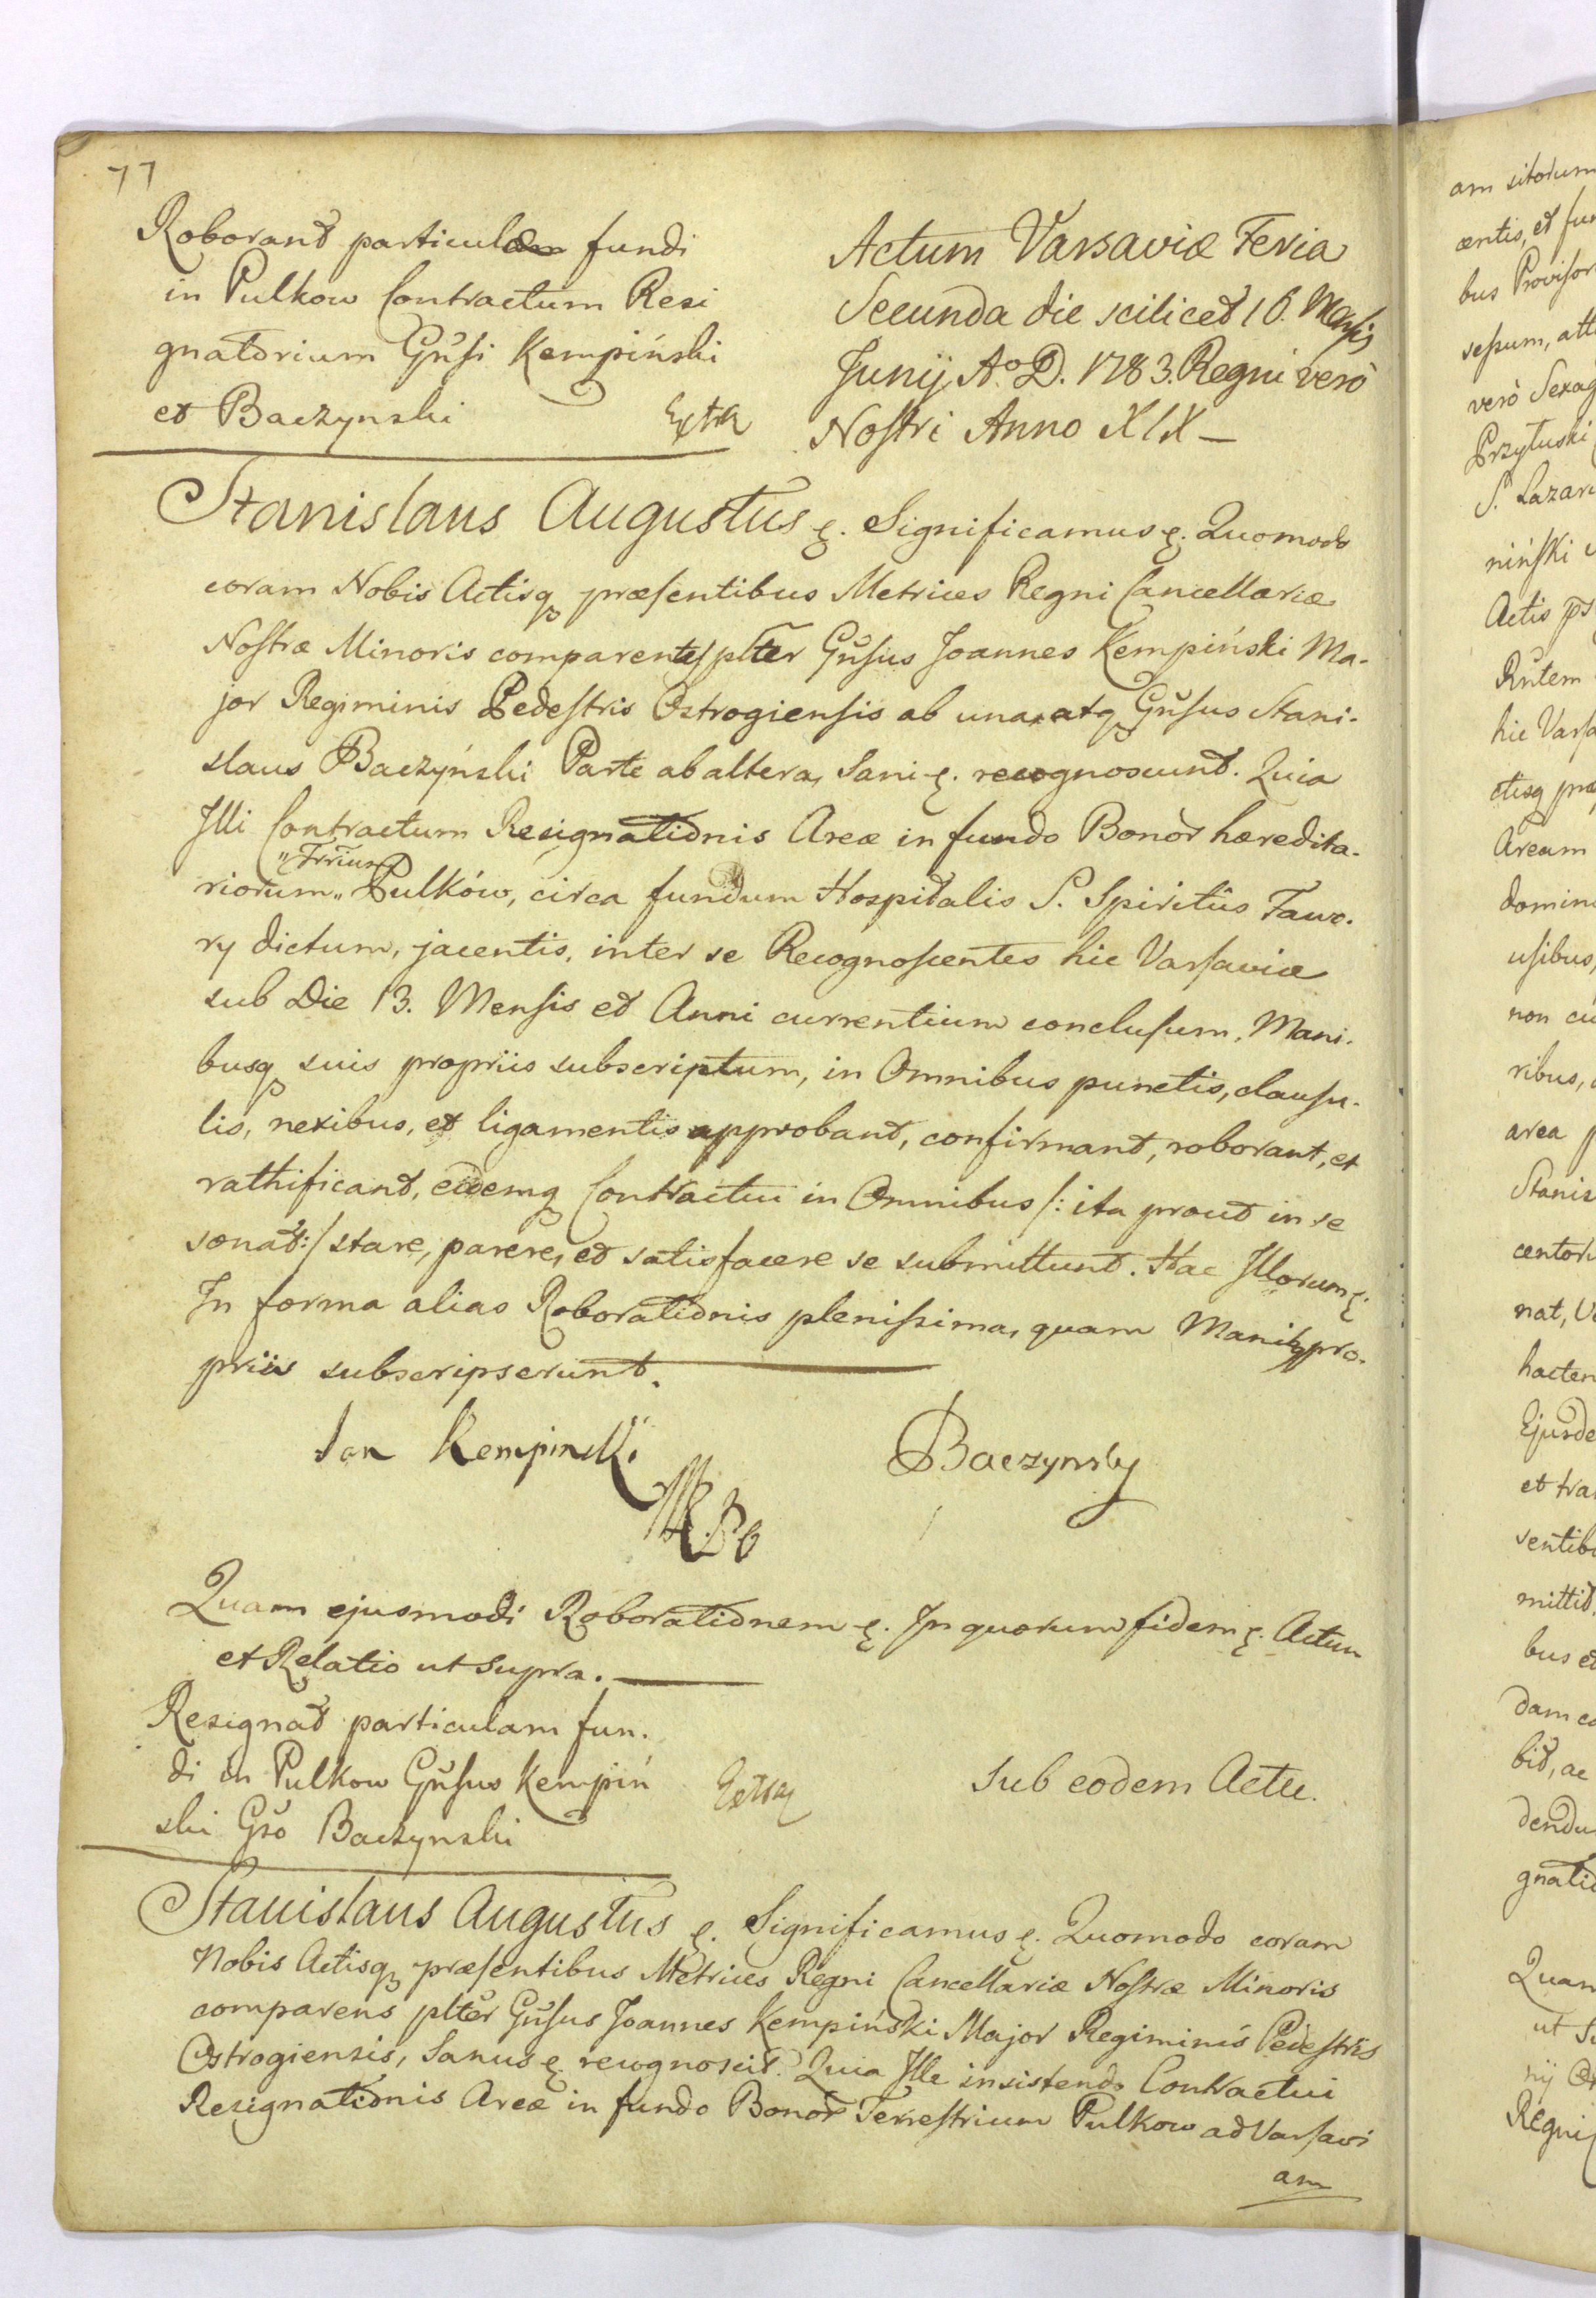 77
Roborant particulam fundi
in Pulkow Contractum Resi
gnatorium Gnsi Kempiński
et Baczynski Extra
Actum Varsaviæ Feria
Secunda die scilicet 16. Mensis
Junij Aº D. 1783. Regni verò
Nostri Anno XIX –
Stanislaus Augustus &. Significamus &. Quomodo
coram Nobis Actisq præsentibus Metrices Regni Cancellariæ
Nostræ Minoris comparentes plter Gnsus Joannes Kempiński Ma-
jor Regiminis Pedestris Ostrogiensis ab una, atq Gnsus Stani-
slaus Baczyński Parte ab altera, Sani &. recognoscunt. Quia
Illi Contractum Resignationis Areæ in fundo Bonor hæredita-
"Trrium"
riorum" Pulków, circa fundum Hospitalis S. Spiritûs Tawo-
ry dictum, jacentis, inter se Recognoscentes hic Varsaviæ
sub Die 13. Mensis et Anni currentium conclusum, Mani-
busq suis propriis subscriptum, in Omnibus punctis, clausu-
lis, nexibus, et ligamentis approbant, confirmant, roborant, et
rathificant, eidemq Contractui in Omnibus /: ita prout in se
sonat :/ stare, parere, et satisfacere se submittunt. Hac Illorum &.
In forma alias Roborationis plenissima, quam Manibq pro-
priis subscripserunt.
Jan Kempinski
Baczynsky
Quam ejusmodi Roborationem &. In quorum fidem &. Actum
et Relatio ut supra.
Resignat particulam fun-
di in Pulkow Gnsus Kempiń
ski Gso Baczynski
Extra
Sub eodem Actu.
Stanislaus Augustus &. Significamus &. Quomodo coram
Nobis Actisq præsentibus Metrices Regni Cancellariæ Nostræ Minoris
comparens plter Gnsus Joannes Kempiński Major Regiminis Pedestris
Ostrogiensis, Sanus &. recognoscit. Quia Ille insistendo Contractui
Resignationis Areæ in fundo Bonor Terrestrium Pulkow ad Varsavi
am
am sitorum
bus
verò
Przyłuski
S. Lazar
niński
Actis
hic Varsa
Aream
domin
usibus,
non
ribus,
area
Stanis
nat,
hacten
Ejusde
et tra
sentib
mittit,
bus et
dam
bit, ac
dendu
gnatio
Quam
ut
Regni